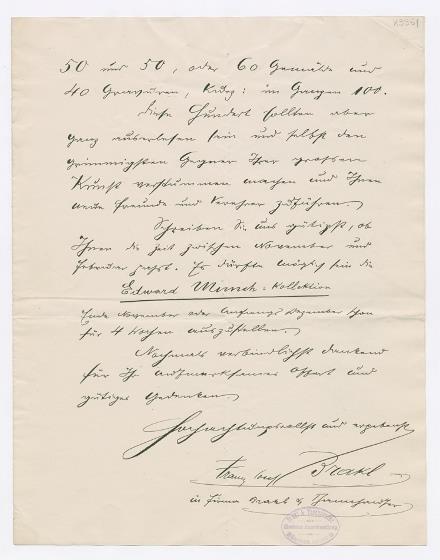 K3351
50 und 50, oder 60 Gemälde und
40 Gravuren, kurz: im Ganzen 100.
Diese Hundert sollten aber
ganz auserlesen sein und selbst den
grimmigsten Gegner Ihrer grossen
Kunst verstummen machen und Ihnen
neue Freunde und Verehrer zuführen.
Schreiben Sie uns gütigst, ob
Ihnen die Zeit zwischen November und
Februar passt. Es dürfte möglich sein die
Edward Munch-Kollektion
Ende November oder Anfangs Dezember schon
für 4 Wochen auszustellen.
Nochmals verbindlichst dankend
für Ihr aufmerksames Offert und
gütiges Gedenken
Hochachtungsvollst und ergebenst
Franz Josef Brakl
in Firma Brakl & Thannhauser